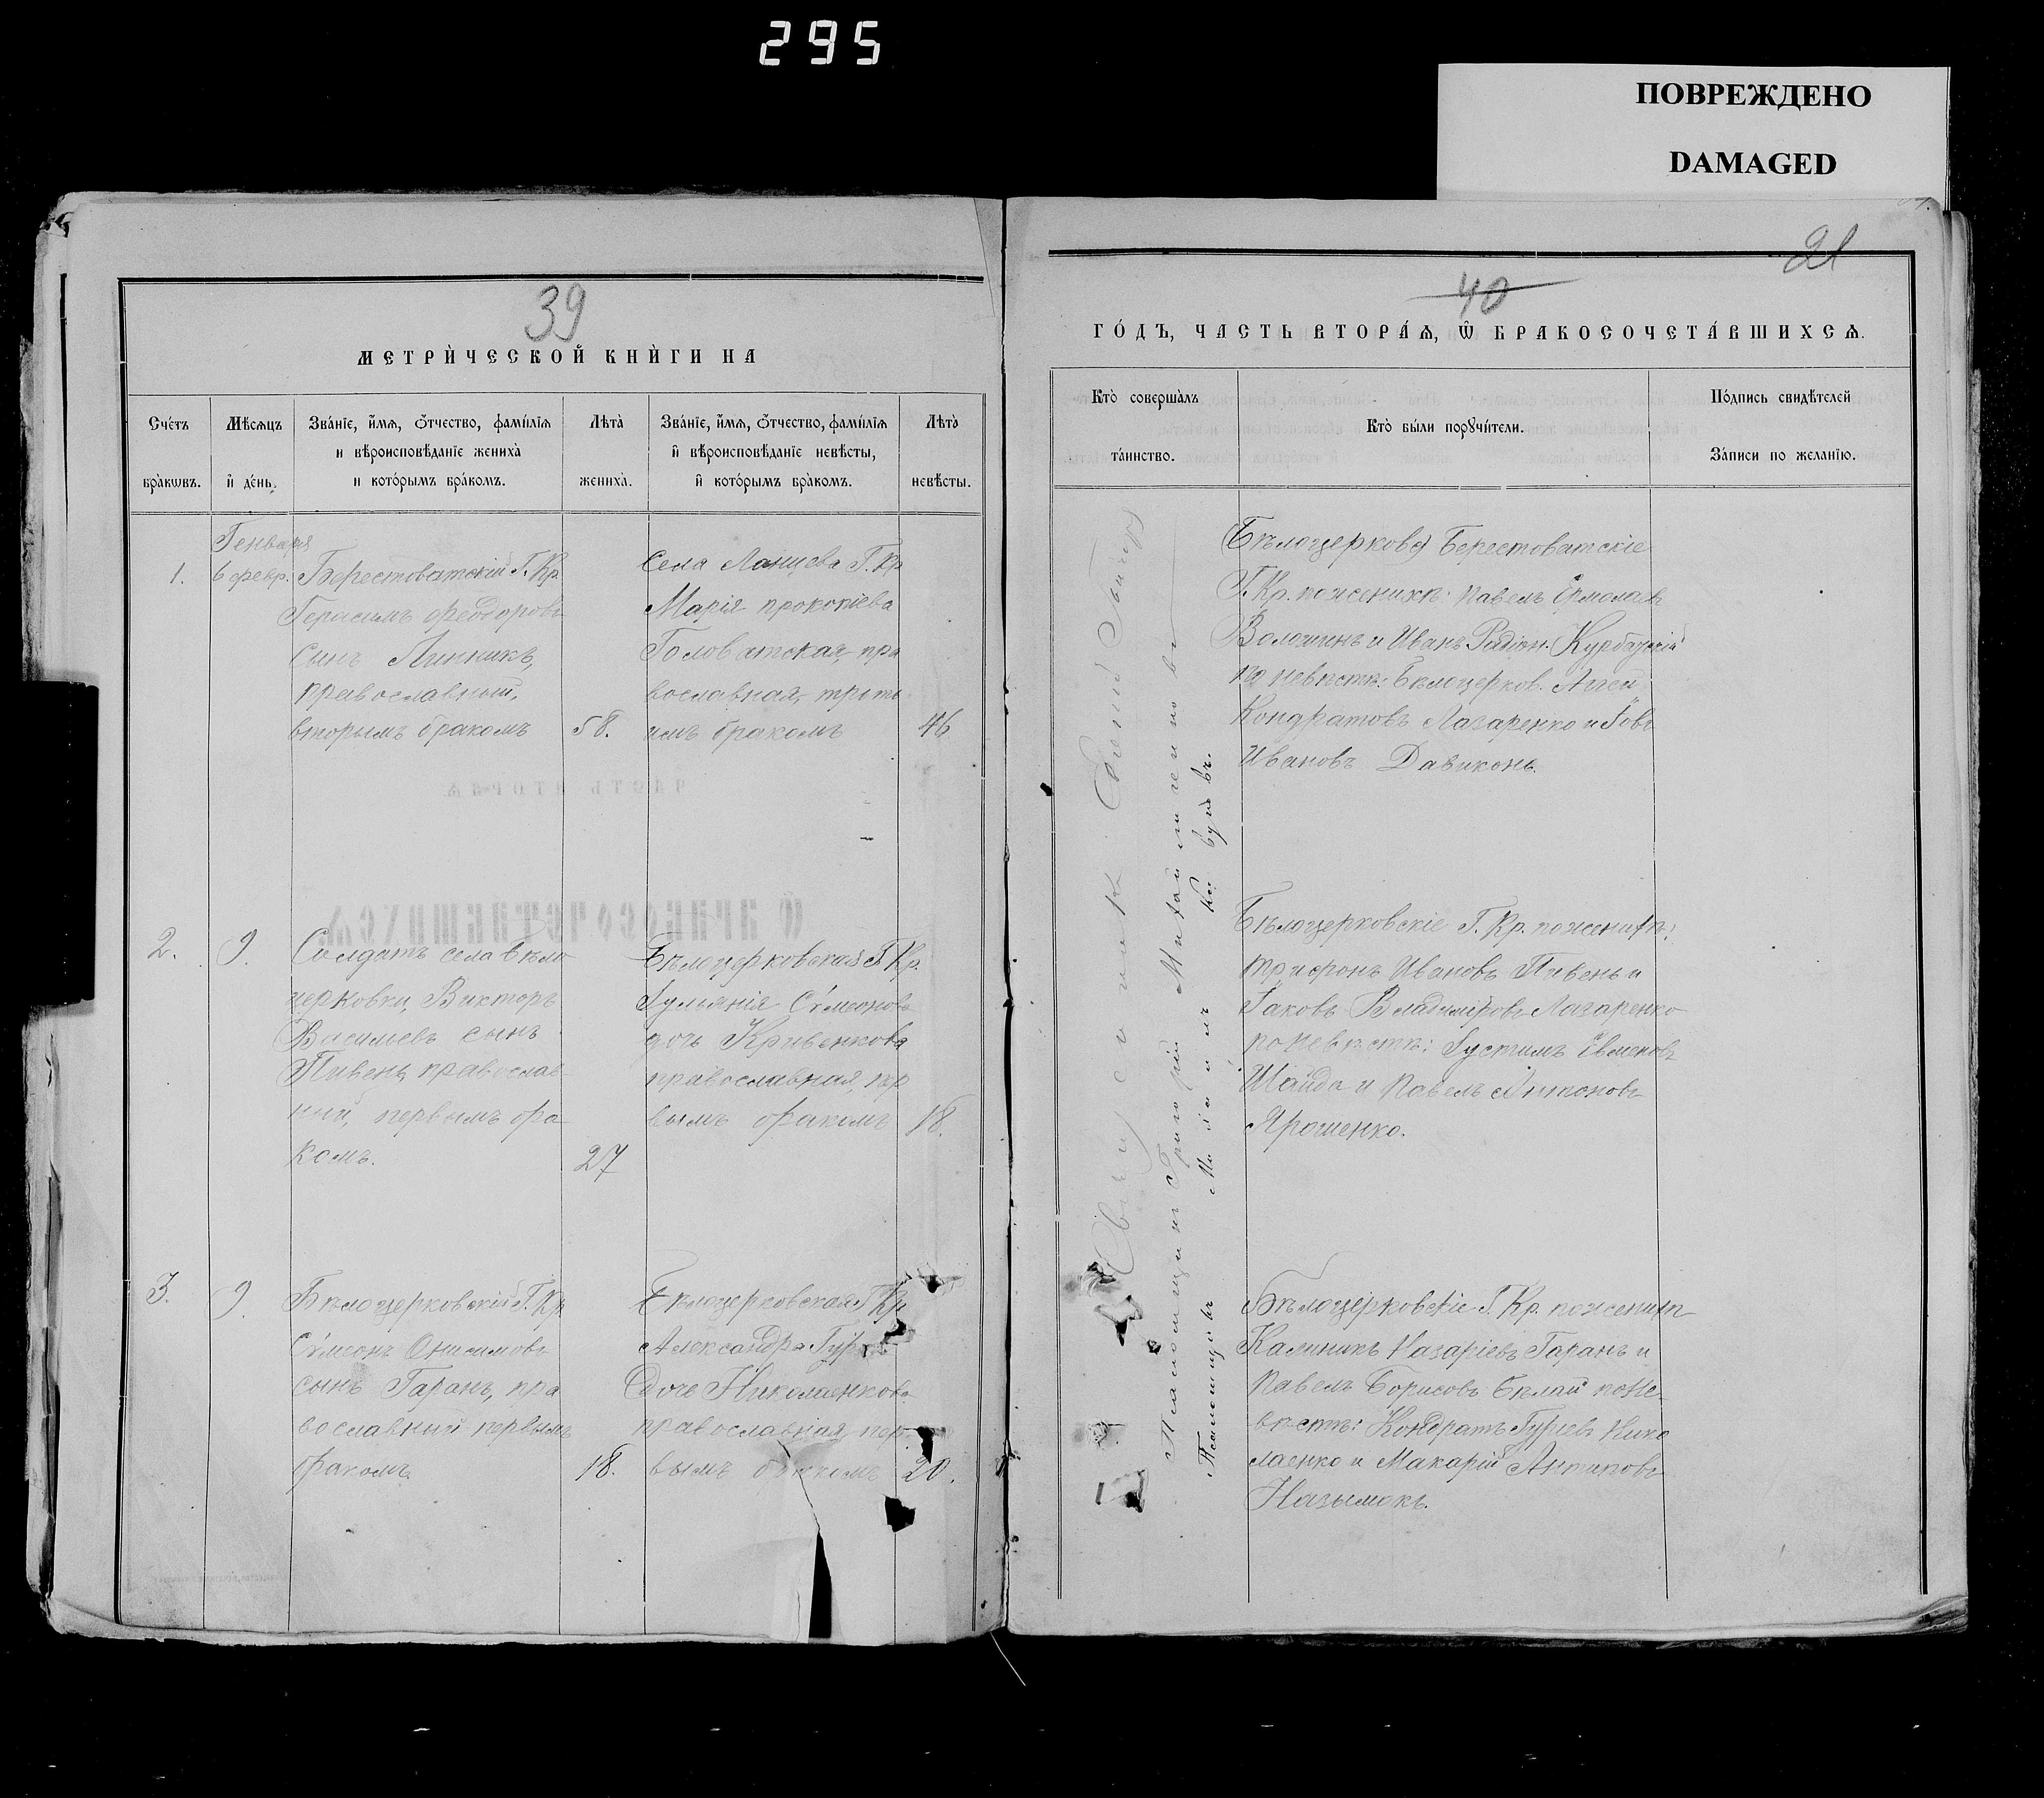 295
ПОВРЕЖДЕНО
DAMAGED
39
МЕТРИ́ЧЕСКОЙ КНИ́ГИ НА
Сче́тъ бра́кѡвъ.
Мѣ́сяцъ и҆ де́нь.
Зва́нїе, и҆́мѧ, ѻ҆́тчество, фами́лїѧ
и вѣроисповѣ́данїе жениха̀
и кото́рымъ бра́комъ.
Лѣта̀ жениха̀.
Зва́нїе, и҆́мѧ, ѻ҆́тчество, фами́лїѧ
и҆ вѣроисповѣ́данїе невѣ́сты,
и҆ кото́рымъ бра́комъ.
Лѣта̀ невѣ́сты.
Генваря
1.
6 февр.
Берестоватскій Г. Кр.
Герасимъ Феодоровъ
сынъ Линникъ,
православный,
вторымъ бракомъ
58.
Села Ланцева Г. Кр
Марія Прокопіева
Головатская, пра
вославная, треть
имъ бракомъ
46
2.
9.
Солдатъ села Бѣло
церковки, Викторъ
Васильевъ сынъ
Пивень, православ
ный, первымъ бра
комъ.
27
Бѣлоцерковская Г. Кр.
Іуліанія Сѵмеонов
дочь Кривенкова
православная, пер
вымъ бракомъ
18.
3.
9.
Бѣлоцерковскій Г. Кр
Сѵмеонъ Онисимовъ
сынъ Гаранъ, пра
вославный первымъ
бракомъ.
18.
Бѣлоцерковская Г Кр
Александра
дочь Николаенкова
православная, пер
вымъ бракомъ
20.
21
40
ГО́ДЪ, ЧАСТЬ ВТОРА́Ѧ, Ѽ БРАКОСОЧЕТА́ВШИХСѦ.
Кто̀ соверша́лъ
та́инство.
Кто̀ бы́ли порꙋчи́тели.
По́дпись свидѣ́телей
За́писи по жела́нїю.
Псаломщикъ Григорій Михайличенковъ
Псаломщикъ
Бѣлоцерков. Берестоватскіе
Г. Кр. по женихѣ: Павелъ Ермолаев
Волошинъ и Иванъ Родіон. Курбатскій
по невѣстѣ: Бѣлоцерков. Аггей
Кондратовъ Лазаренко и Іовъ
Ивановъ Давиконь.
Бѣлоцерковскіе Г. Кр. по женихѣ:
Трифонъ Ивановъ Пивень и
Іаковъ Владиміровъ Лазаренко
по невѣстѣ: Іустимъ Евменовъ
Шайда и Павелъ Антоновъ
Ярошенко.
Бѣлоцерковскіе Г. Кр. по женихѣ
Калиникъ Назаріевъ Гаранъ и
Павелъ Борисовъ Бѣлай по не-
вѣстѣ: Кондратъ Гуріевъ Нико
лаенко и Макарій Антиповъ
Назымокъ.